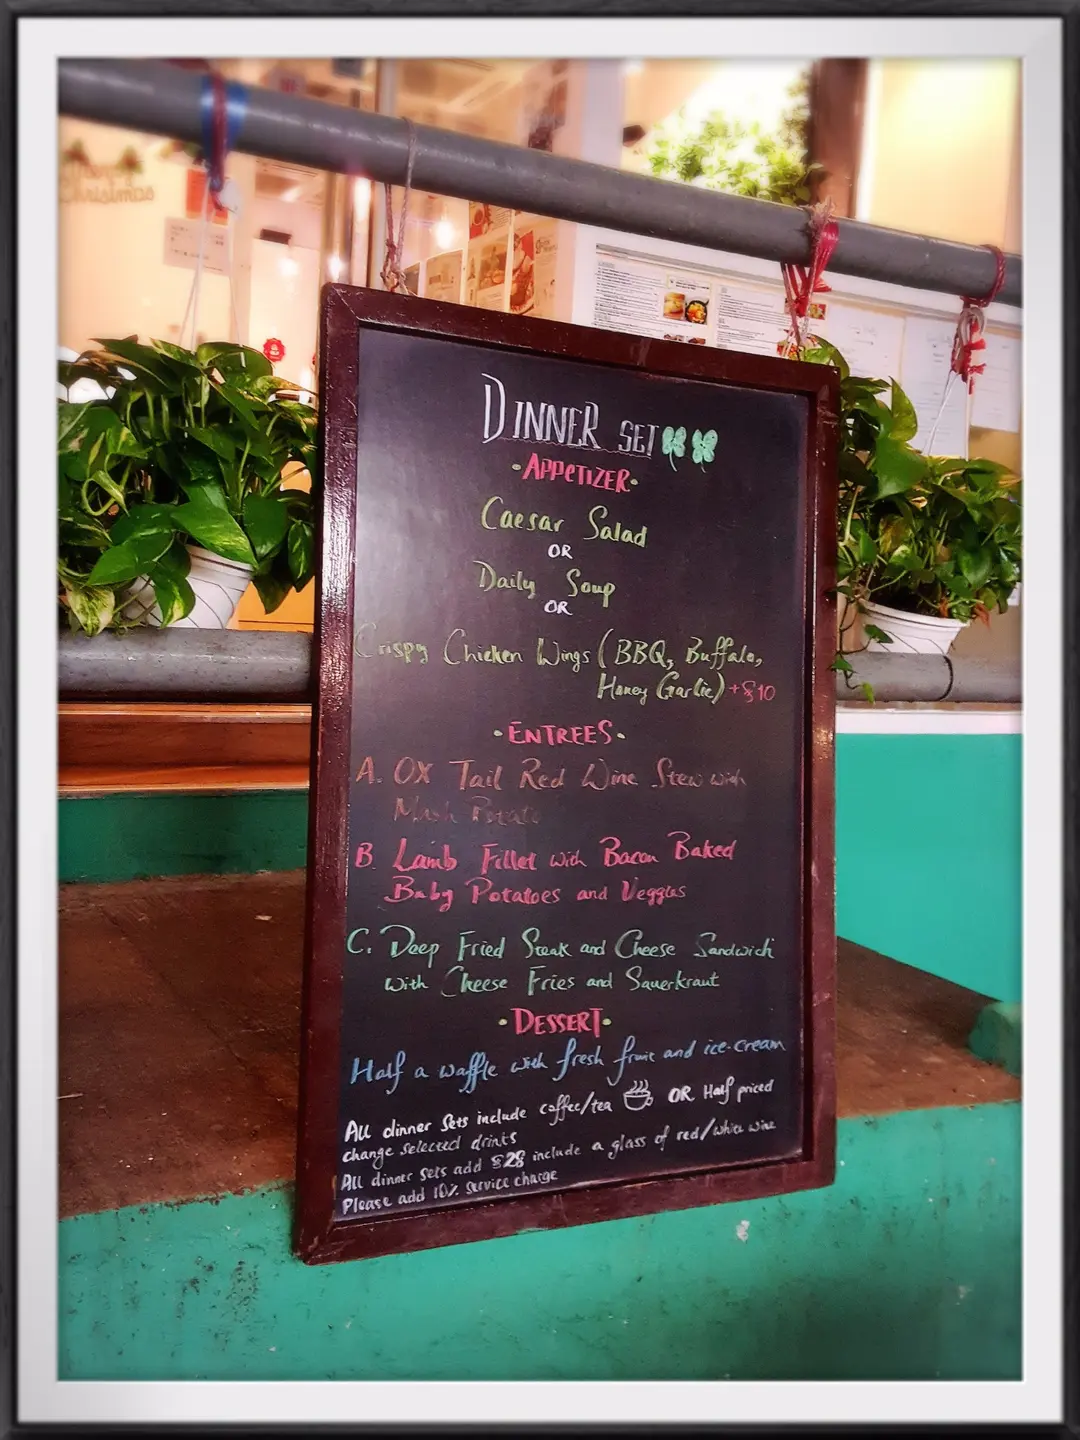 Merry
Christmas
DINNER SET
·APPETIZER·
Caesar Salad
OR
Daily Soup
OR
Crispy Chicken Wings (BBQ, Buffalo,
Honey Garlic) +$10
·ENTREES·
A. OX Tail Red Wine Stew with
Mash Potato
B. Lamb Fillet with Bacon Baked
Baby Potatoes and Veggies
C. Deep Fried Steak and Cheese Sandwich
with Cheese Fries and Sauerkraut
·DESSERT·
Half a waffle with fresh fruit and ice-cream
All dinner sets include coffee/tea OR Half priced
change selected drinks
All dinner sets add $28 include a glass of red/white wine
Please add 10% service charge